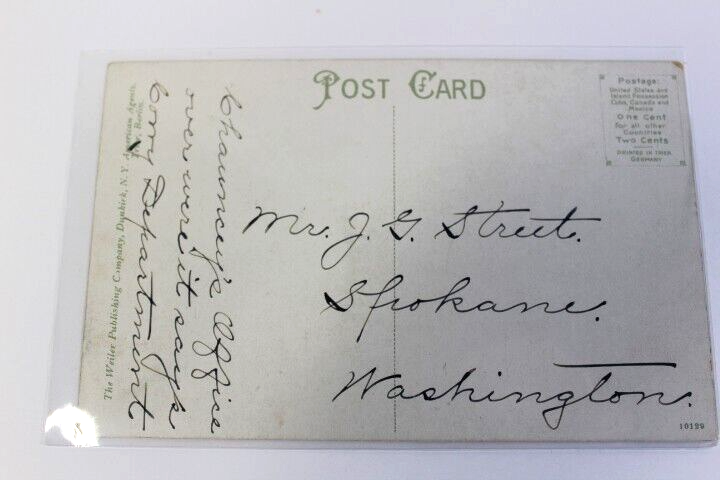 POST CARD
Postage:
United States and
Island Possession
Cuba, Canada and
Mexico
One Cent
For all other
Countries
Two Cents
PRINTED IN TRIER
GERMANY
Chauncey's Office
over were it says
Cory Department
Mr. J. G. Street.
Spokane.
Washington.
The Weiler Publishing Company, Dunkirk, N.Y. American Agents,
Berlin.
10129